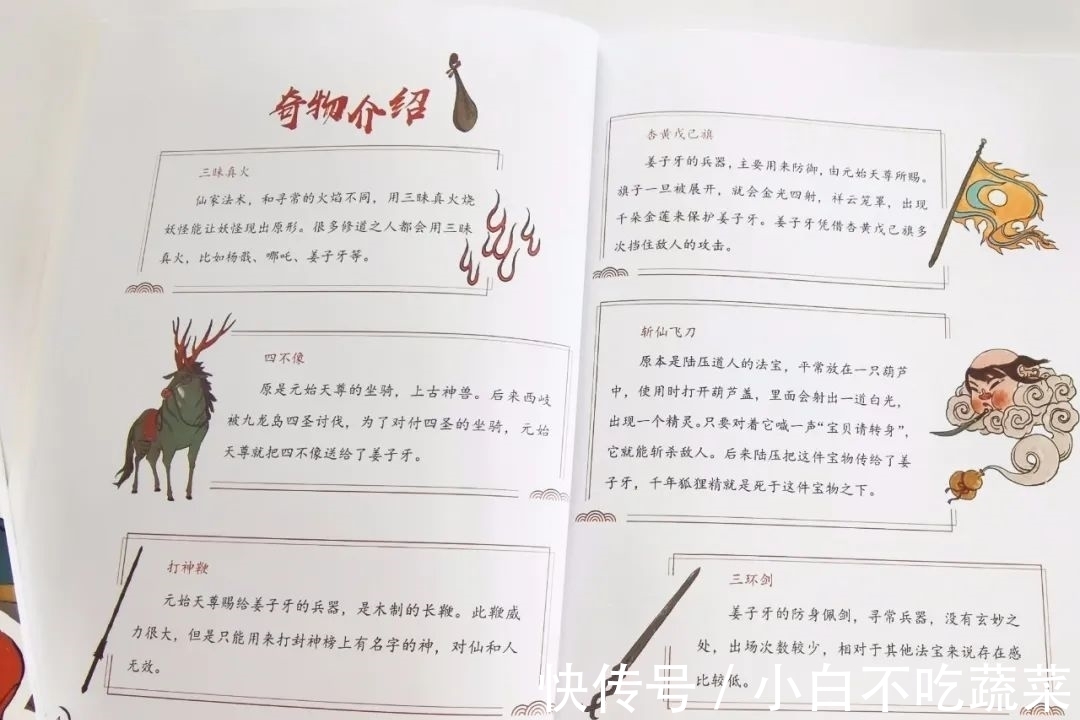 奇物介绍
三昧真火
仙家法术，和寻常的火焰不同，用三昧真火烧
妖怪能让妖怪现出原形。很多修道之人都会用三昧
真火，比如杨戬、哪吒、姜子牙等。
四不像
原是元始天尊的坐骑，上古神兽。后来西岐
被九龙岛四圣讨伐，为了对付四圣的坐骑，元始
天尊就把四不像送给了姜子牙。
打神鞭
元始天尊赐给姜子牙的兵器，是木制的长鞭。此鞭威
力很大，但是只能用来打封神榜上有名字的神，对仙和人
无效。
杏黄戊己旗
姜子牙的兵器，主要用来防御，由元始天尊所赐。
旗子一旦被展开，就会金光四射，祥云笼罩，出现
千朵金莲来保护姜子牙。姜子牙凭借杏黄戊己旗多
次挡住敌人的攻击。
斩仙飞刀
原本是陆压道人的法宝，平常放在一只葫芦
中，使用时打开葫芦盖，里面会射出一道白光，
出现一个精灵。只要对着它喊一声“宝贝请转身”，
它就能斩杀敌人。后来陆压把这件宝物传给了姜
子牙，千年狐狸精就是死于这件宝物之下。
三环剑
姜子牙的防身佩剑，寻常兵器，没有玄妙之
处，出场次数较少，相对于其他法宝来说存在感
比较低。
快传号 / 小白不吃蔬菜